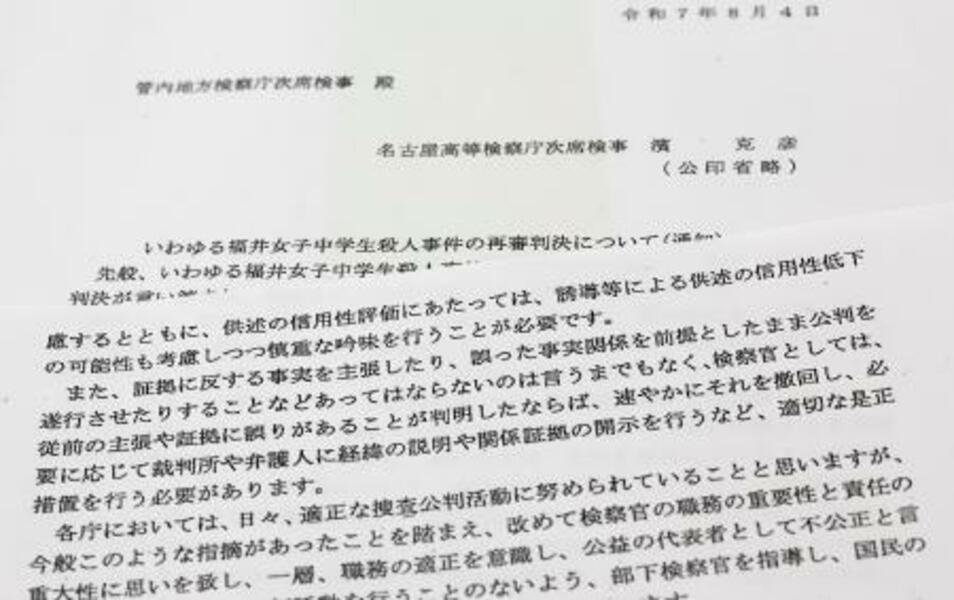 令和7年8月4日
管内地方検察庁次席検事 殿
名古屋高等検察庁次席検事 濱 克彦
(公印省略)
いわゆる福井女子中学生殺人事件の再審判決について(通知)
先般、いわゆる福井女子中学生殺人
判決が言い
慮するとともに、供述の信用性評価にあたっては、誘導等による供述の信用性低下
の可能性も考慮しつつ慎重な吟味を行うことが必要です。
また、証拠に反する事実を主張したり、誤った事実関係を前提としたまま公判を
遂行させたりすることなどあってはならないのは言うまでもなく、検察官としては、
従前の主張や証拠に誤りがあることが判明したならば、速やかにそれを撤回し、必
要に応じて裁判所や弁護人に経緯の説明や関係証拠の開示を行うなど、適切な是正
措置を行う必要があります。
各庁においては、日々、適正な捜査公判活動に努められていることと思いますが、
今般このような指摘があったことを踏まえ、改めて検察官の職務の重要性と責任の
重大性に思いを致し、一層、職務の適正を意識し、公益の代表者として不公正と言
活動を行うことのないよう、部下検察官を指導し、国民の